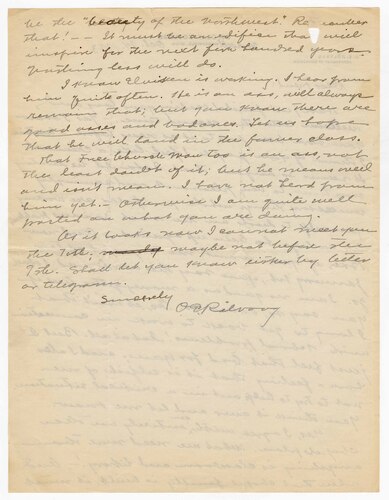 be the "beauty of the Northwest" Remember
that! -- It must be an edifice that will
inspire for the next five hundred years
Nothing less will do.
I know is working. I hear from
him quite often. He is an ass, will always
remain that; but you know there are
good asses and bad ones. Let us hope
that he will land in the former class.
That Free Church Man too is an ass, not
the least doubt of it; but he means well
and isn't mean. I have not heard from
him yet. Otherwise I am quite well
posted on what you are doing.
As it looks now I cannot meet you
the maybe not before the
Shall let you know either by letter
or telegram.
Sincerely